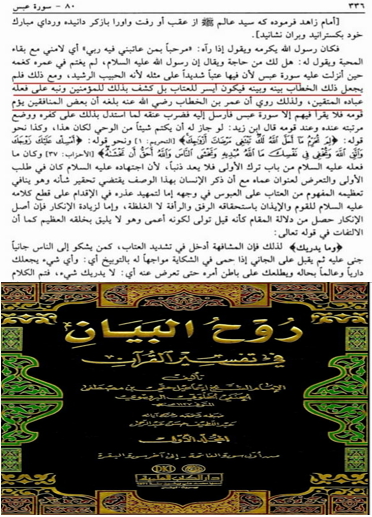 ٣٣٦ ٨٠ - سورة عبس
[امام زاهد فرموده كه سيد عالم ﷺ از عقب أو رفت واورا باز كر دانيده ورداي مبارك
خود بكسترانيد وبران نشانيد].
فكان رسول الله يكرمه ويقول إذا رآه: «مرحباً بمن عاتبني فيه ربي» أي لامني مع بقاء
المحبة ويقول له: هل لك من حاجة ويقال إن رسول الله عليه السلام، لم يغتم في عمره كغمه
حين أنزلت عليه سورة عبس لأن فيها عتباً شديداً على مثله لأنه الحبيب الرشيد، ومع ذلك فلم
يجعل ذلك الخطاب بينه وبينه فيكون أيسر للعتاب بل كشف بذلك للمؤمنين ونبه على فعله
عباده المتقين، ولذلك روي أن عمر بن الخطاب رضي الله عنه بلغه أن بعض المنافقين يؤم
قومه فلا يقرأ فيهم إلا سورة عبس فأرسل إليه فضرب عنقه لما استدل بذلك على كفره ووضع
مرتبته عنده وعند قومه قال ابن زيد: لو جاز له أن يكتم شيئاً من الوحي لكان هذا، وكذا نحو
قوله: ﴿لم تحرم ما أحل الله لك تبتغي مرضات أزواجك﴾ [التحريم: ١] ونحو قوله: ﴿أمسك عليك زوجك
واتق الله وتخفي في نفسك ما الله مبديه وتخشى الناس والله أحق أن تخشاه﴾ [الأحزاب: ٣٧] وكان ما
فعله عليه السلام من باب ترك الأولى فلا يعد ذنباً، لأن اجتهاده عليه السلام كان في طلب
الأولى والتعرض لعنوان عماه مع أن ذكر الإنسان بهذا الوصف يقتضي تحقير شأنه وهو ينافي
تعظيمه المفهوم من العتاب على العبوس في وجهه إما لتمهيد عذره في الإقدام على قطع كلامه
عليه السلام للقوم والإيذان باستحقاقه الرفق والرأفة لا الغلظة، وإما لزيادة الإنكار فإن أصل
الإنكار حصل من دلالة المقام كأنه قيل تولى لكونه أعمى وهو لا يليق بخلقه العظيم كما أن
الالتفات في قوله تعالى:
﴿وما يدريك﴾ لذلك فإن المشافهة أدخل في تشديد العتاب، كمن يشكو إلى الناس جانياً
جنى عليه ثم يقبل على الجاني إذا حمى في الشكاية مواجهاً له بالتوبيخ أي: وأي شيء يجعلك
دارياً وعالماً بحاله ويطلعك على باطن أمره حتى تعرض عنه أي: لا يدريك شيء، فتم الكلام
روح البيان
في تفسير القرآن
تأليف
المجلد الأول
دار الكتب العلمية
DKI